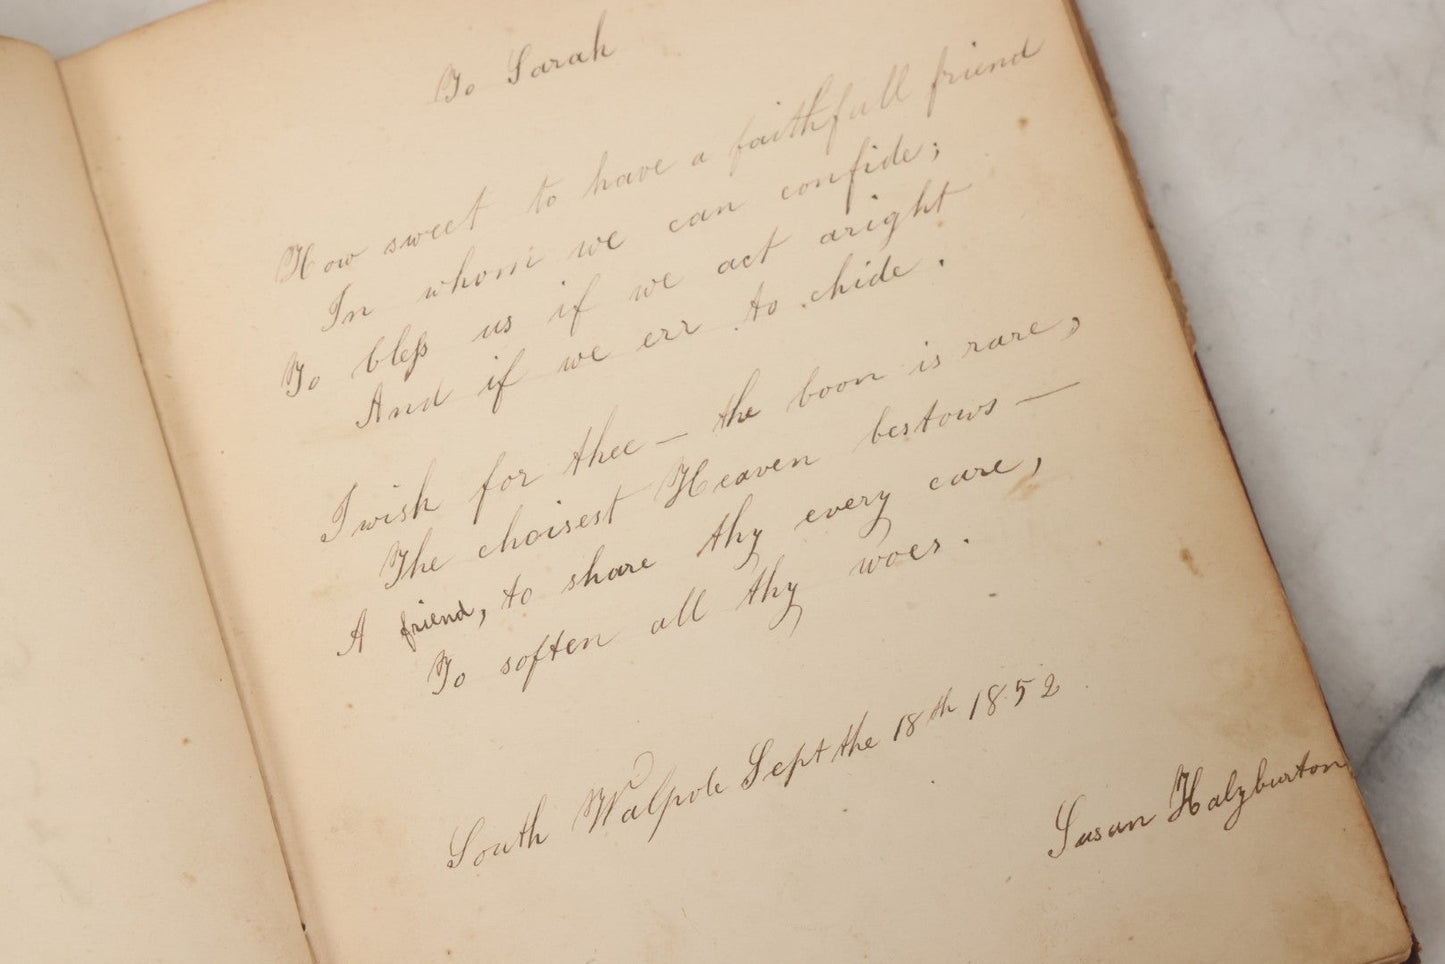 To Sarah
How sweet to have a faithfull friend
In whom we can confide;
To bless us if we act aright
And if we err to chide.
I wish for thee — the boon is rare,
The choisest Heaven bestows —
A friend, to share thy every care,
To soften all thy woes.
South Walpole Sept the 18th 1852
Susan Halzburton